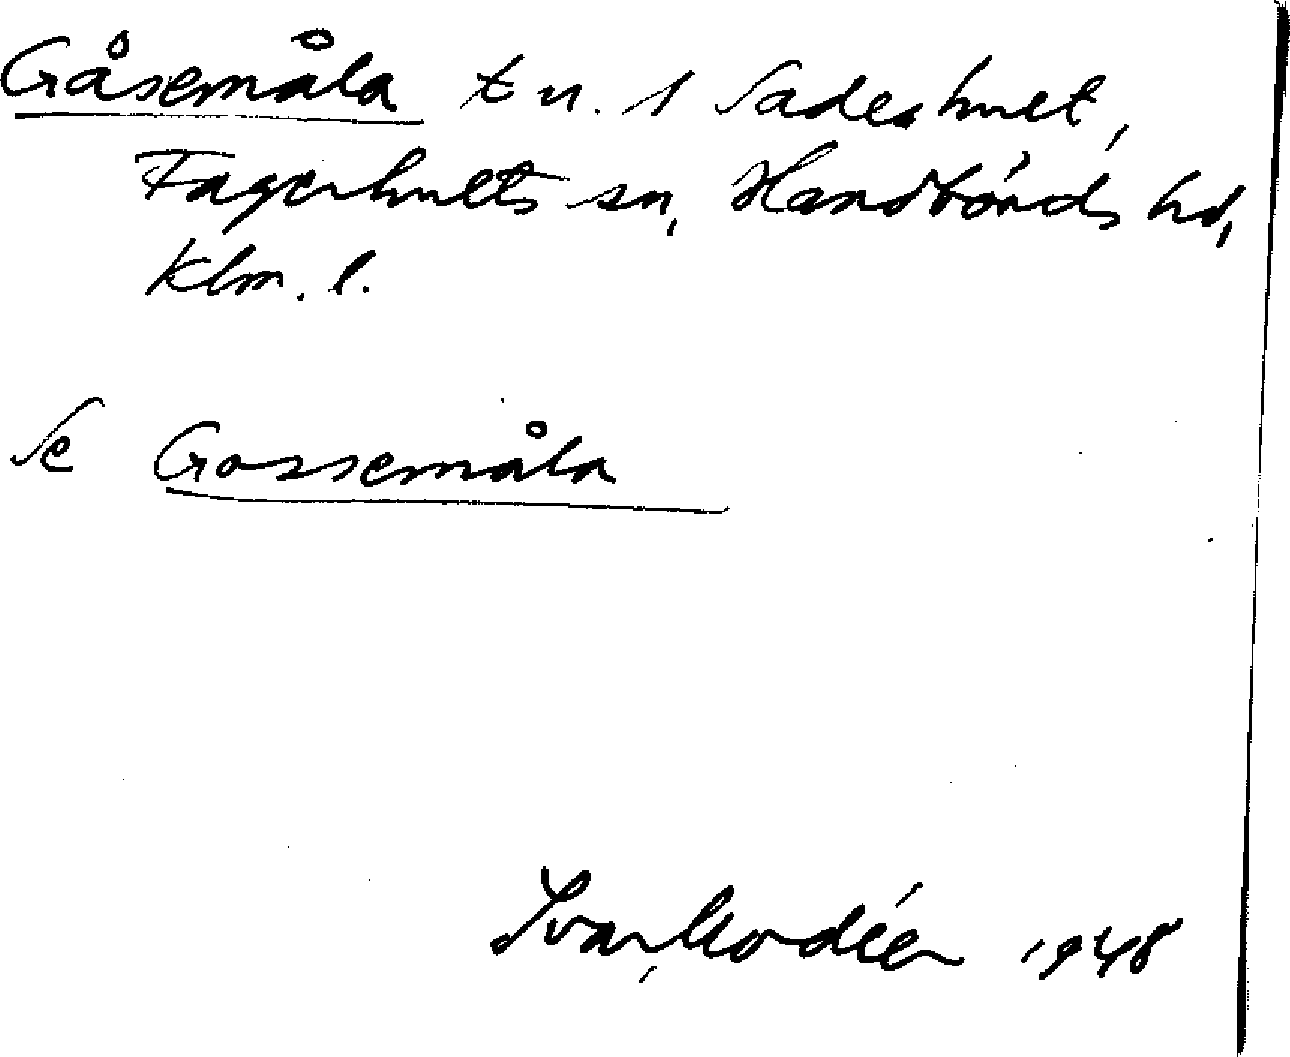 Gåsemåla t n. 1 Sadeshult,
Fagerhults sn, Handbörds hd,
Klm. l.
Se Gossemåla
Ivar Modéer 1948